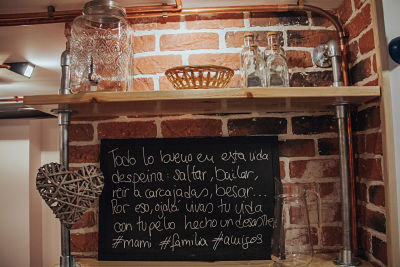 Todo lo bueno en esta vida
despeina: saltar, bailar,
reír a carcajadas, besar...
Por eso, ojalá vivas tu vida
con tu pelo hecho un desastre
#mami #familia #amigos